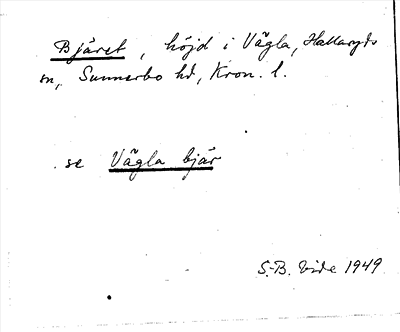 Bjäret, höjd i Vägla, Hallaryds
sn, Sunnerbo hd, Kron. l.
se Vägla bjär
S-B. Vide 1949